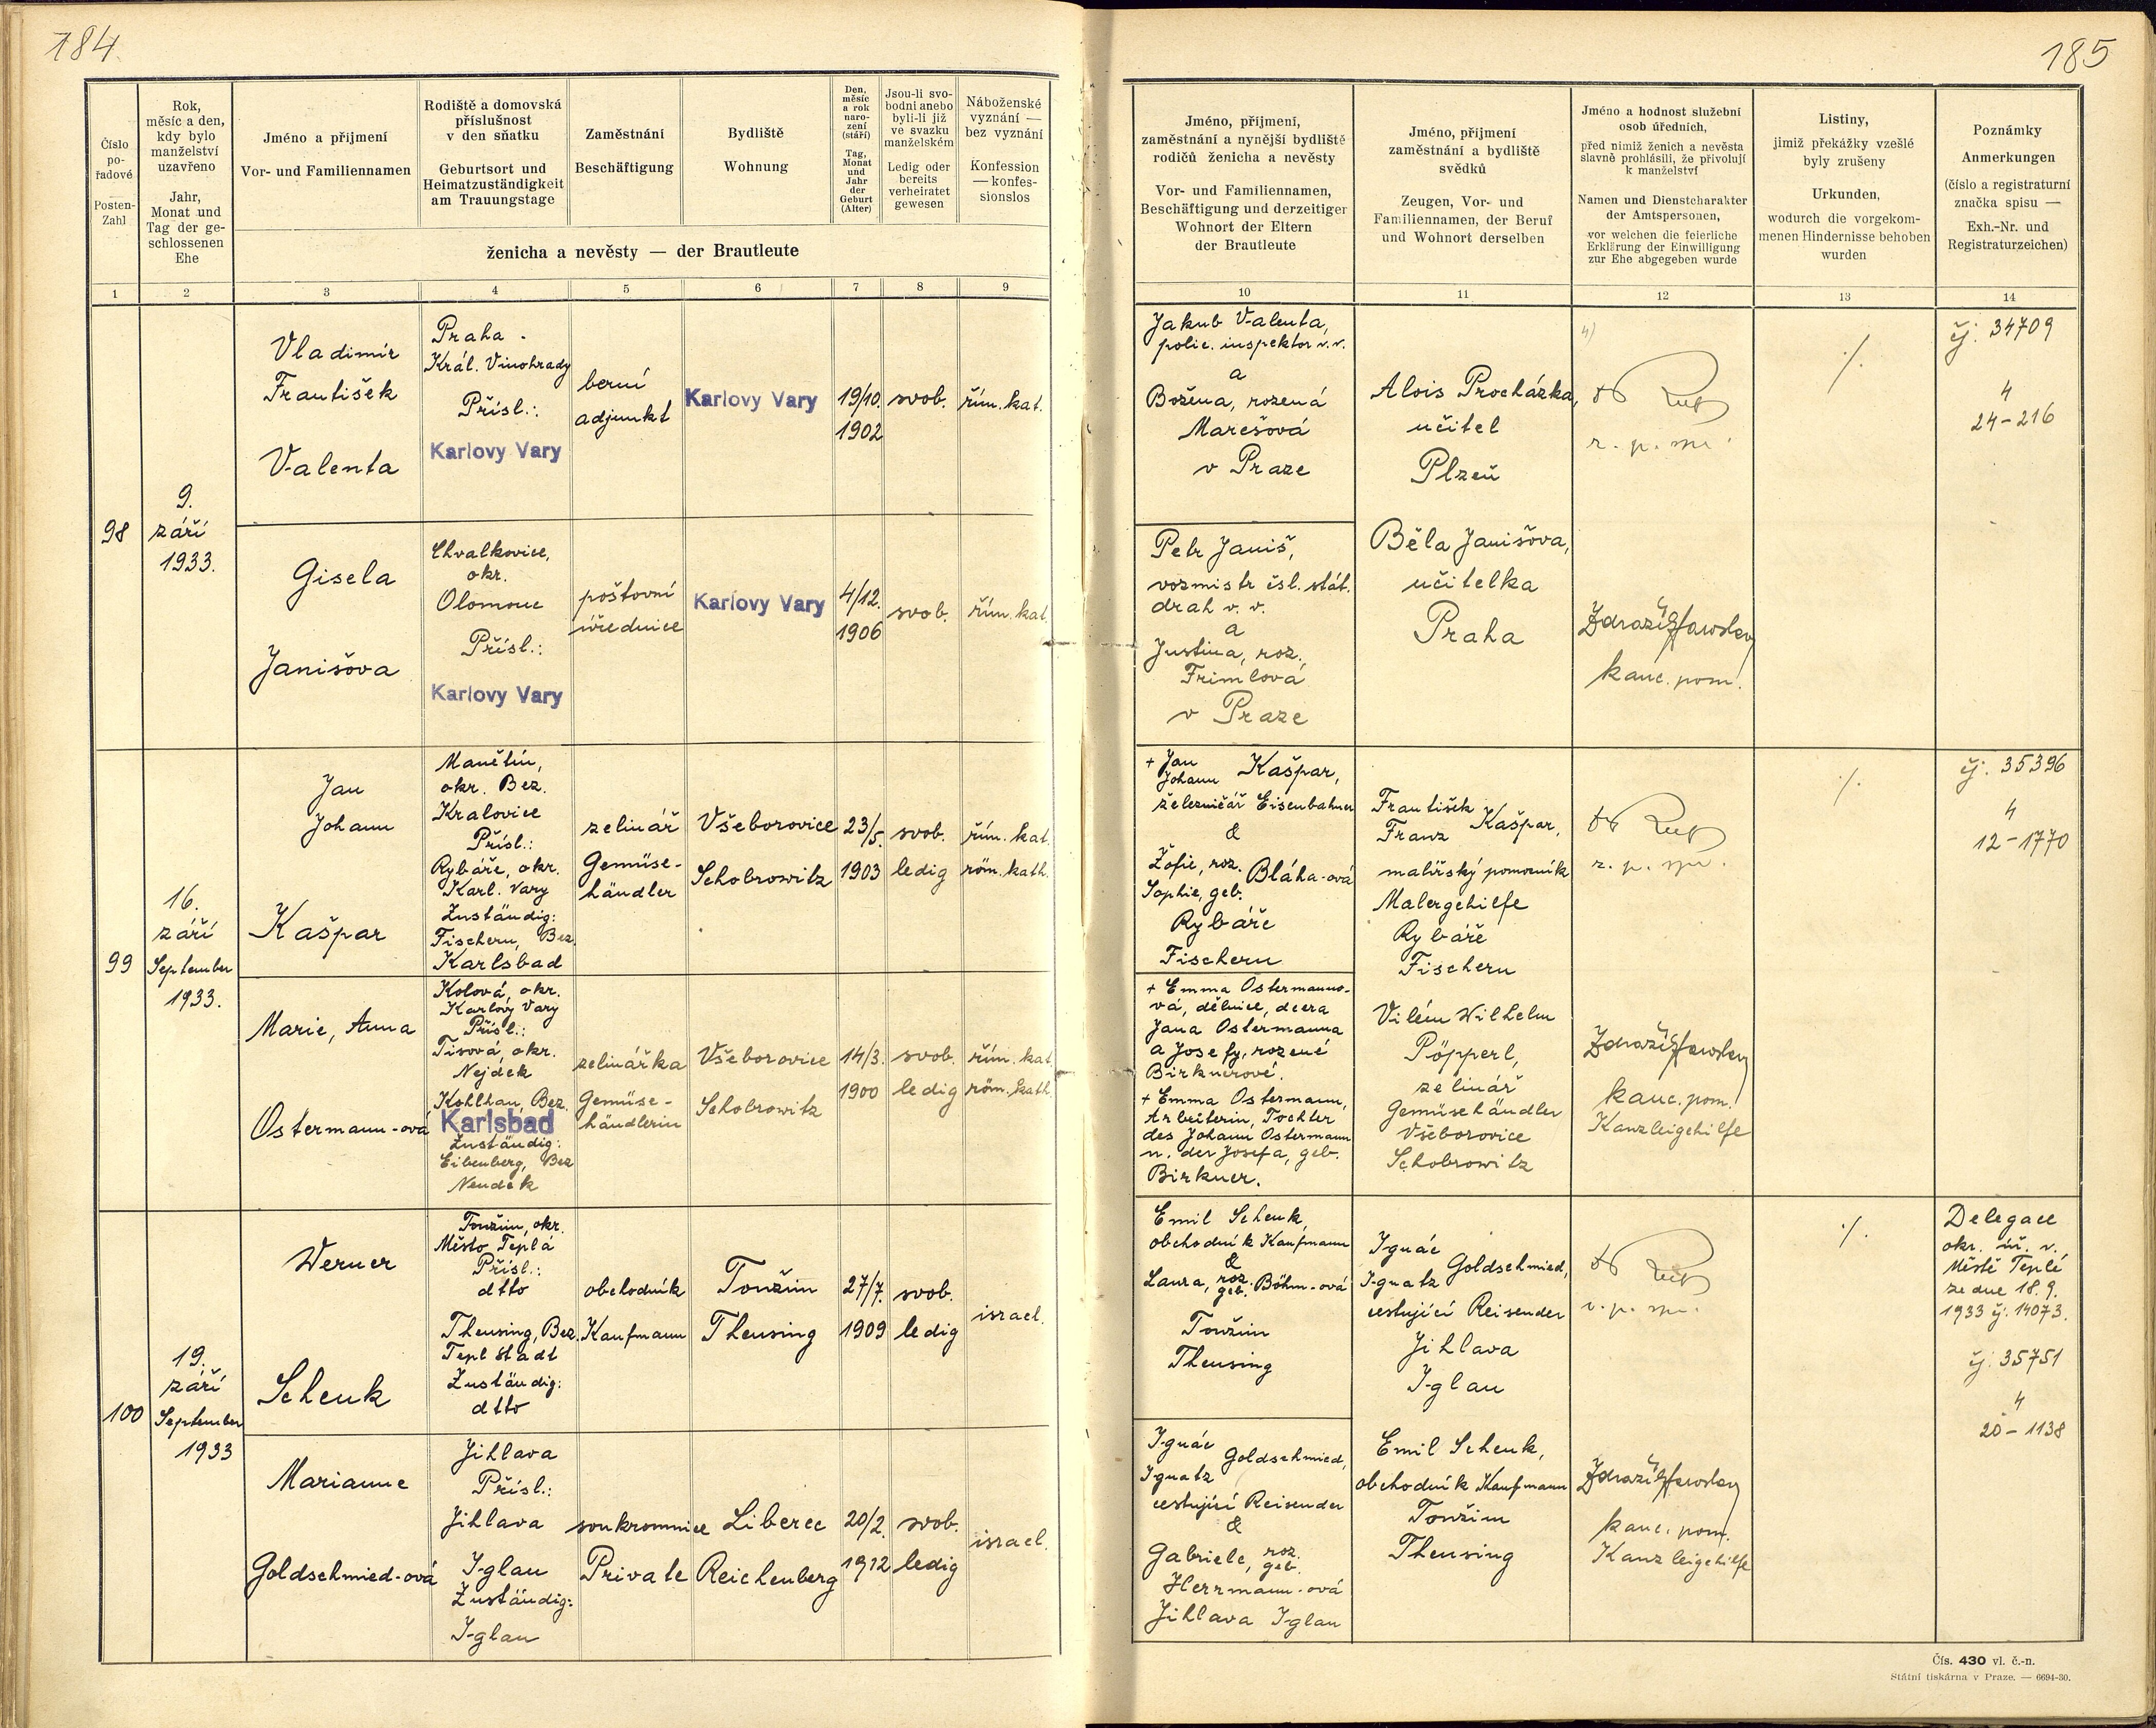 184.
Číslo
po-
řadové
Posten-
Zahl
Rok,
měsíc a den,
kdy bylo
manželství
uzavřeno
Jahr,
Monat und
Tag der ge-
schlossenen
Ehe
Jméno a příjmení
Vor- und Familiennamen
Rodiště a domovská
příslušnost
v den sňatku
Geburtsort und
Heimatzuständigkeit
am Trauungstage
Zaměstnání
Beschäftigung
Bydliště
Wohnung
Den,
měsíc
a rok
naro-
zení
(stáří)
Tag,
Monat
und
Jahr
der
Geburt
(Alter)
Jsou-li svo-
bodni anebo
byli-li již
ve svazku
manželském
Ledig oder
bereits
verheiratet
gewesen
Náboženské
vyznání —
bez vyznání
Konfession
— konfes-
sionslos
ženicha a nevěsty — der Brautleute
1 2 3 4 5 6 7 8 9
98
9.
září
1933.
Vladimír
František
Valenta
Praha -
Král. Vinohrady
Přísl.:
Karlovy Vary
berní
adjunkt
Karlovy Vary
19/10.
1902
svob.
řím. kat.
Gisela
Janišova
Chvalkovice,
okr.
Olomouc
Přísl.:
Karlovy Vary
poštovní
úřednice
Karlovy Vary
4/12.
1906
svob.
řím. kat.
99
16.
září
September
1933.
Jan
Johann
Kašpar
Manětín,
okr. Bez.
Kralovice
Přísl.:
Rybáře, okr.
Karl. Vary
Zuständig:
Fischern, Bez.
Karlsbad
zelinář
Gemüse-
händler
Všeborovice
Schobrowitz
23/5.
1903
svob.
ledig
řím. kat.
röm. kath.
Marie, Anna
Ostermann-ová
Kolová, okr.
Karlovy Vary
Přísl.:
Tisová, okr.
Nejdek
Kohlhau, Bez.
Karlsbad
Zuständig:
Eibenberg, Bez
Neudek
zelinářka
Gemüse-
händlerin
Všeborovice
Schobrowitz
14/3.
1900
svob.
ledig
řím. kat.
röm. kath.
100
19.
září
September
1933
Werner
Schenk
Toužim, okr.
Město Teplá
Přísl.:
dtto
Theusing, Bez.
Tepl Stadt
Zuständig:
dtto
obchodník
Kaufmann
Toužim
Theusing
27/7.
1909
svob.
ledig
israel.
Marianne
Goldschmied-ová
Jihlava
Přísl.:
Jihlava
Iglau
Zuständig:
Iglau
soukromnice
Private
Liberec
Reichenberg
20/2.
1912
svob.
ledig
israel.
185
Jméno, příjmení,
zaměstnání a nynější bydliště
rodičů ženicha a nevěsty
Vor- und Familiennamen,
Beschäftigung und derzeitiger
Wohnort der Eltern
der Brautleute
Jméno, příjmení
zaměstnání a bydliště
svědků
Zeugen, Vor- und
Familiennamen, der Beruf
und Wohnort derselben
Jméno a hodnost služební
osob úředních,
před nimiž ženich a nevěsta
slavně prohlásili, že přivolují
k manželství
Namen und Dienstcharakter
der Amtspersonen,
vor welchen die feierliche
Erklärung der Einwilligung
zur Ehe abgegeben wurde
Listiny,
jimiž překážky vzešlé
byly zrušeny
Urkunden,
wodurch die vorgekom-
menen Hindernisse behoben
wurden
Poznámky
Anmerkungen
(číslo a registraturní
značka spisu —
Exh.-Nr. und
Registraturzeichen)
10 11 12 13 14
Jakub Valenta,
polic. inspektor v. v.
a
Božena, rozená
Marešová
v Praze
Alois Procházka,
učitel
Plzeň
./.
čj. 34709
4
24-216
Petr Janiš,
vozmistr čsl. stát.
drah v. v.
a
Justina, roz.
Frimlová
v Praze
Běla Janišova,
učitelka
Praha
Zdražil Jaroslav
kanc. pom.
+ Jan
Johann Kašpar,
železničář Eisenbahner
&
Žofie, roz.
Sophie, geb. Bláha-ová
Rybáře
Fischern
František
Franz Kašpar,
malířský pomocník
Malergehilfe
Rybáře
Fischern
./.
čj. 35396
4
12-1770
+ Emma Ostermanno-
vá, dělnice, dcera
Jana Ostermanna
a Josefy, rozené
Birknerové.
+ Emma Ostermann,
Arbeiterin, Tochter
des Johann Ostermann
u. der Josefa, geb.
Birkner.
Vilém Wilhelm
Pöpperl,
zelinář
Gemüsehändler
Všeborovice
Schobrowitz
Zdražil Jaroslav
kanc. pom.
Kanzleigehilfe
Emil Schenk,
obchodník Kaufmann
&
Laura, roz.
geb. Böhm-ová
Toužim
Theusing
Ignác
Ignatz Goldschmied,
cestující Reisender
Jihlava
Iglau
./.
Delegace
okr. úř. v.
Městě Teplé
ze dne 18. 9.
1933 čj. 14073.
čj. 35751
4
20-1138
Ignác
Ignatz Goldschmied,
cestující Reisender
&
Gabriele, roz.
geb.
Herrmann-ová
Jihlava Iglau
Emil Schenk,
obchodník Kaufmann
Toužim
Theusing
Zdražil Jaroslav
kanc. pom.
Kanzleigehilfe
Čís. 430 vl. č.-n.
Státní tiskárna v Praze. — 6694-30.